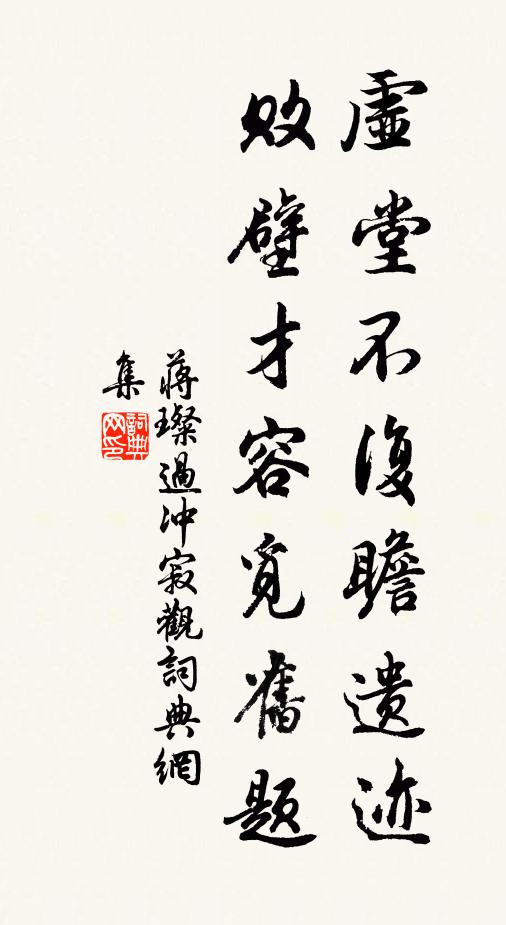 虛堂不復瞻遺迹
敗壁才容覓舊題
蔣璨過沖寂觀詞典網
集
詞典网印